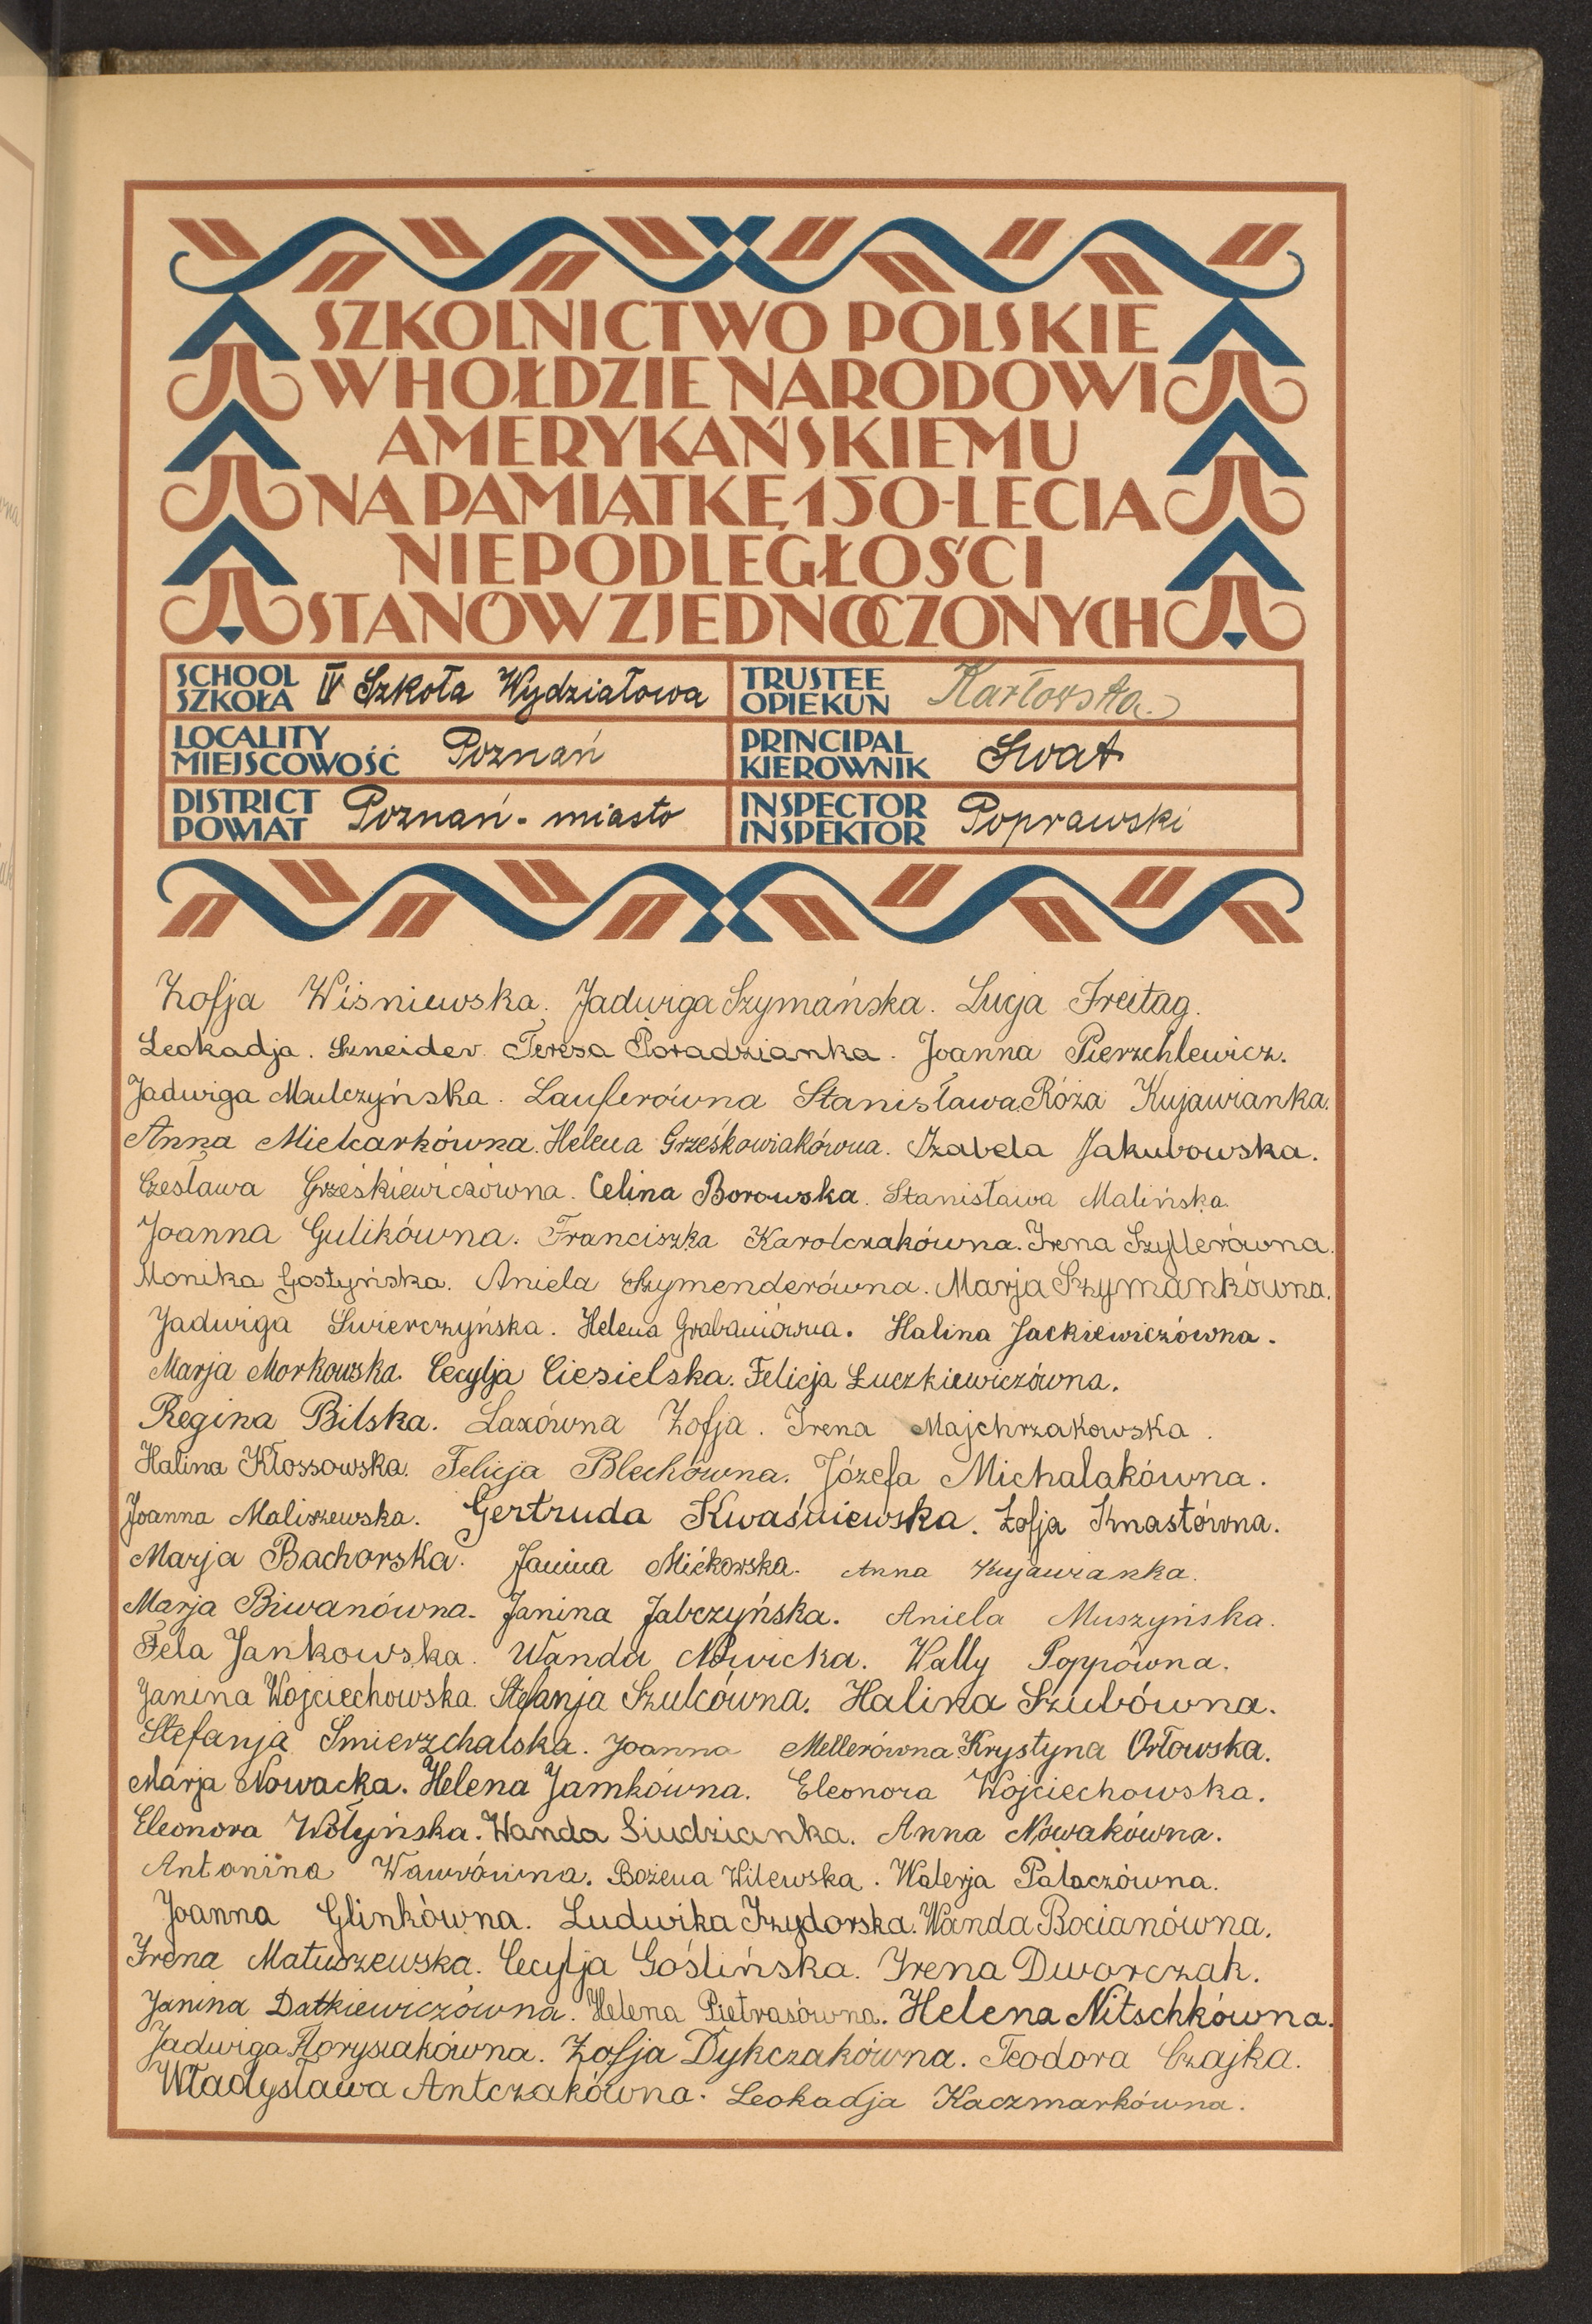 SZKOLNICTWO POLSKIE
W HOŁDZIE NARODOWI
AMERYKAŃSKIEMU
NA PAMIĄTKĘ 150-LECIA
NIEPODLEGŁOŚCI
STANÓW ZJEDNOCZONYCH
SCHOOL SZKOŁA IV Szkoła Wydziałowa TRUSTEE OPIEKUN Karłowska
LOCALITY MIEJSCOWOŚĆ Poznań PRINCIPAL KIEROWNIK Swat
DISTRICT POWIAT Poznań - miasto INSPECTOR INSPEKTOR Poprawski
Zofja Wiśniewska. Jadwiga Szymańska. Łucja Freitag.
Leokadja. Szneider Teresa Poradzianka. Joanna Pierzchlewicz.
Jadwiga Mulczyńska. Lauferówna Stanisława. Róża Kujawianka.
Anna Mielcarkówna. Helena Grześkowiakówna. Izabela Jakubowska.
Czesława Grześkiewiczówna. Celina Borowska. Stanisława Malińska.
Joanna Gulikówna. Franciszka Karolczakówna. Irena Szyllerówna.
Monika Gostyńska. Aniela Szymenderówna. Marja Szymankówna.
Jadwiga Swierczyńska. Helena Grabaniówna. Halina Jackiewiczówna.
Marja Morkowska. Cecylja Ciesielska. Felicja Łuczkiewiczówna.
Regina Bilska. Laxówna Zofja. Irena Majchrzakowska.
Halina Kłossowska. Felicja Blechówna. Józefa Michalakówna.
Joanna Maliszewska. Gertruda Kwaśniewska. Zofja Knastówna.
Marja Bachorska. Janina Mićkowska. Anna Kujawianka.
Marja Biwanówna. Janina Jabczyńska. Aniela Muszyńska.
Fela Jankowska. Wanda Nowicka. Wally Poppówna.
Janina Wojciechowska. Stefanja Szulcówna. Halina Szubówna.
Stefanja Smierzchalska. Joanna Mellerówna. Krystyna Orłowska.
Marja Nowacka. Helena Jamkówna. Eleonora Wojciechowska.
Eleonora Wołyńska. Wanda Siudzianka. Anna Nowakówna.
Antonina Wawrówna. Bożena Wilewska. Walerja Pałaczówna.
Joanna Glinkówna. Ludwika Izydorska. Wanda Bocianówna.
Irena Matuszewska. Cecylja Goślińska. Irena Dworczak.
Janina Datkiewiczówna. Helena Pietrasówna. Helena Nitschkówna.
Jadwiga Florysiakówna. Zofja Dykczakówna. Teodora Czajka.
Władysława Antczakówna. Leokadja Kaczmarkówna.